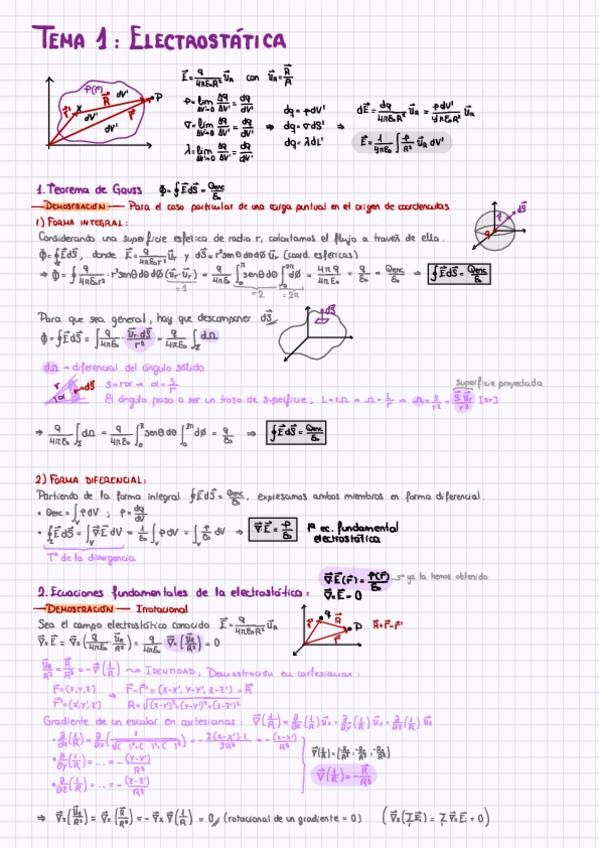 TEMA 1: ELECTROSTÁTICA
ρ(r⃗')
R⃗
dV'
P
E⃗ = q/4πε₀R² u⃗_R con u⃗_R = R⃗/R
ρ = lim Δq/ΔV' = dq/dV'
dq = ρdV'
dE⃗ = dq/4πε₀R² u⃗_R = ρdV'/4πε₀R² u⃗_R
dq = σdS'
dq = λdL'
E⃗ = 1/4πε₀ ∫ ρ/R² u⃗_R dV'
1. Teorema de Gauss Φ = ∮E⃗dS⃗ = Qenc/ε₀
DEMOSTRACIÓN — Para el caso particular de una carga puntual en el origen de coordenadas
1) FORMA INTEGRAL:
Considerando una superficie esférica de radio r, calculamos el flujo a través de ella.
Φ = ∮E⃗dS⃗, donde E⃗ = q/4πε₀r² u⃗r y dS⃗ = r²senθdθdϕ u⃗r (coord. esféricas)
⇒ Φ = ∮ q/4πε₀r² · r²senθdθdϕ (u⃗r·u⃗r) = q/4πε₀ ∫₀^π senθdθ ∫₀^2π dϕ = 4πq/4πε₀ = q/ε₀ = Qenc/ε₀ ⇒ ∮E⃗dS⃗ = Qenc/ε₀
=1 =2 =2π
Para que sea general, hay que descomponer dS⃗
dS⃗
dΩ → diferencial del ángulo sólido
superficie proyectada
El ángulo pasa a ser un trozo de superficie;
[sr]
⇒ q/4πε₀ ∫dΩ = q/4πε₀ ∫₀^π senθdθ ∫₀^2π dϕ = q/ε₀ ⇒ ∮E⃗dS⃗ = Qenc/ε₀
2) FORMA DIFERENCIAL:
Partiendo de la forma integral ∮E⃗dS⃗ = Qenc/ε₀, expresamos ambos miembros en forma diferencial.
• Qenc = ∫ᵥ ρdV ; ρ = dq/dV
• ∮E⃗dS⃗ = ∫ᵥ ∇⃗E⃗dV = 1/ε₀ ∫ᵥ ρdV = ∫ᵥ ρ/ε₀ dV ⇒ ∇⃗·E⃗ = ρ/ε₀ 1ª ec. fundamental
electrostática
Tª de la divergencia
∇⃗·E⃗(r⃗) = ρ(r⃗)/ε₀ → ya la hemos obtenido
2. Ecuaciones fundamentales de la electrostática: ∇⃗×E⃗ = 0
DEMOSTRACIÓN — Irrotacional
Sea el campo electrostático conocido E⃗ = q/4πε₀R² u⃗_R
R⃗ = r⃗ - r⃗'
∇⃗×E⃗ = ∇⃗×(q/4πε₀ · u⃗_R/R²) = q/4πε₀ ∇⃗×(u⃗_R/R²) = 0
u⃗_R/R² = R⃗/R³ = -∇⃗(1/R) → IDENTIDAD, Demostración en cartesianas:
r⃗ = (x,y,z) ⇒ r⃗-r⃗' = (x-x', y-y', z-z') = R⃗
r⃗' = (x',y',z') R = √((x-x')²+(y-y')²+(z-z')²)
Gradiente de un escalar en cartesianas: ∇⃗(1/R) = ∂/∂x(1/R)u⃗x + ∂/∂y(1/R)u⃗y + ∂/∂z(1/R)u⃗z
• ∂/∂y(1/R) = ... = -(y-y')/R³
• ∂/∂z(1/R) = ... = -(z-z')/R³
∇⃗(1/R) = -R⃗/R³
⇒ ∇⃗×(u⃗_R/R²) = ∇⃗×(R⃗/R³) = -∇⃗×∇⃗(1/R) = 0 (rotacional de un gradiente = 0) (∇⃗×(Σ E⃗ᵢ) = Σ ∇⃗×E⃗ᵢ = 0)